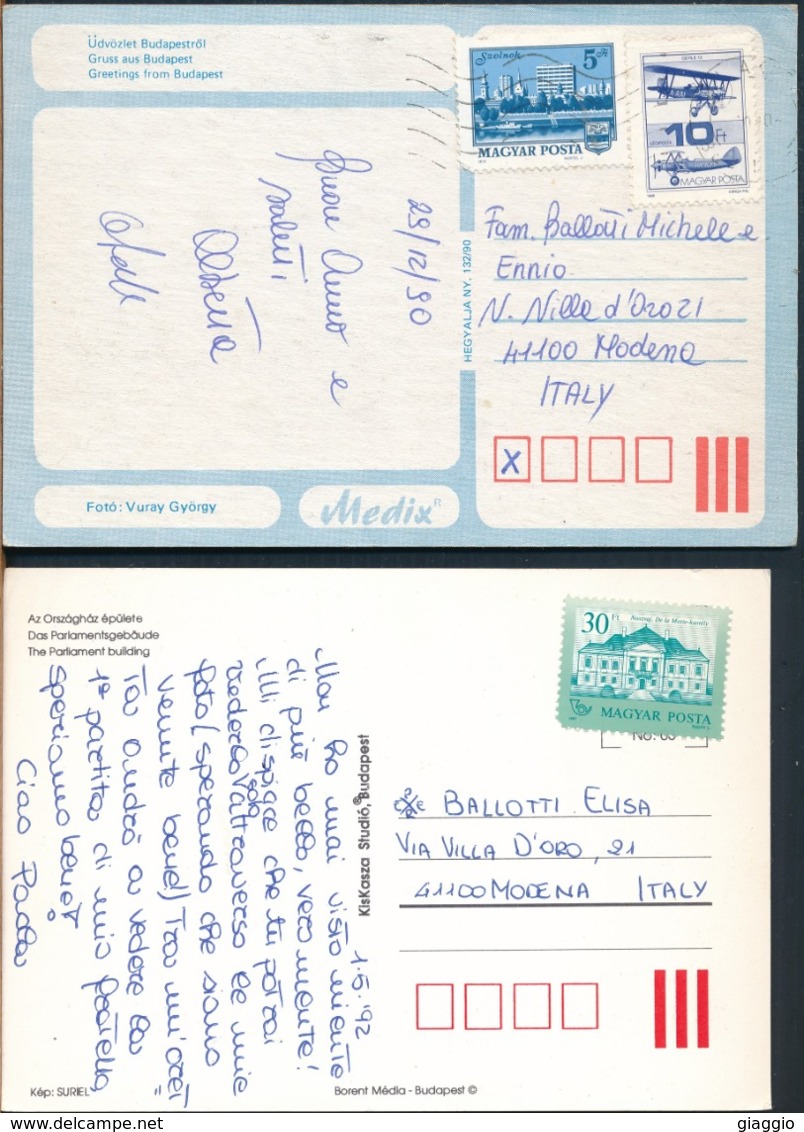 Üdvözlet Budapestről
Gruss aus Budapest
Greetings from Budapest
Szolnok
5 Ft
MAGYAR POSTA
10 Ft
MAGYAR POSTA
29/12/90
Buon Anno e
saluti
HEGYALJA NY. 132/90
Fam. Ballotti Michele e
Ennio
V. Ville d'Oro 21
41100 Modena
ITALY
X
Fotó: Vuray György
Medix R
Az Országház épülete
Das Parlamentsgebäude
The Parliament building
30 Ft
MAGYAR POSTA
No: 03
1.5.'92
Non ho mai visto niente
di più bello, veramente!
Mi dispiace che tu potrai
vederlo solo attraverso le mie
foto (sperando che siano
venute bene!) Tra un'oretta
andrò a vedere la
1ª partita di mio fratello
speriamo bene!
Ciao Paola
KisKasza Studió, Budapest
BALLOTTI ELISA
VIA VILLA D'ORO, 21
41100 MODENA ITALY
Kép: SURIEL
Borent Média - Budapest ©
giaggio